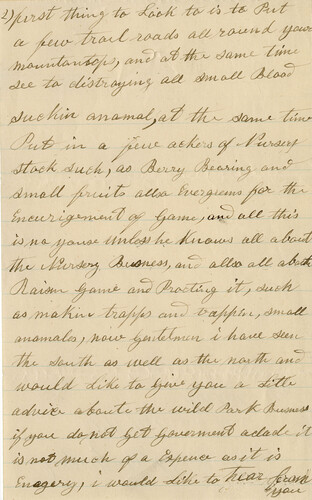 2) first thing to Look to is to Put
a few trail roads all round your
mountantops, and at the same time
see to distroying all small Blood
suckin anamal, at the same time
Put in a few ackers of Nursery
stock such, as Berry Bearing and
small fruits allso Evergreens for the
Encurigement of Game, and all this
is, no youse unless he Knows all about
the Nursery Busness, and allso all about
Raisen Game and Procting it, such
as makin trapps and trappin, small
anamales, now Gentelmen i have seen
the south as well as the north and
would Like to Give you a Litle
advice aboute the wild Park Business
if you do not get Goverment aclade it
is not much of a Expence as it is
Enagery, i would like to hear from
you